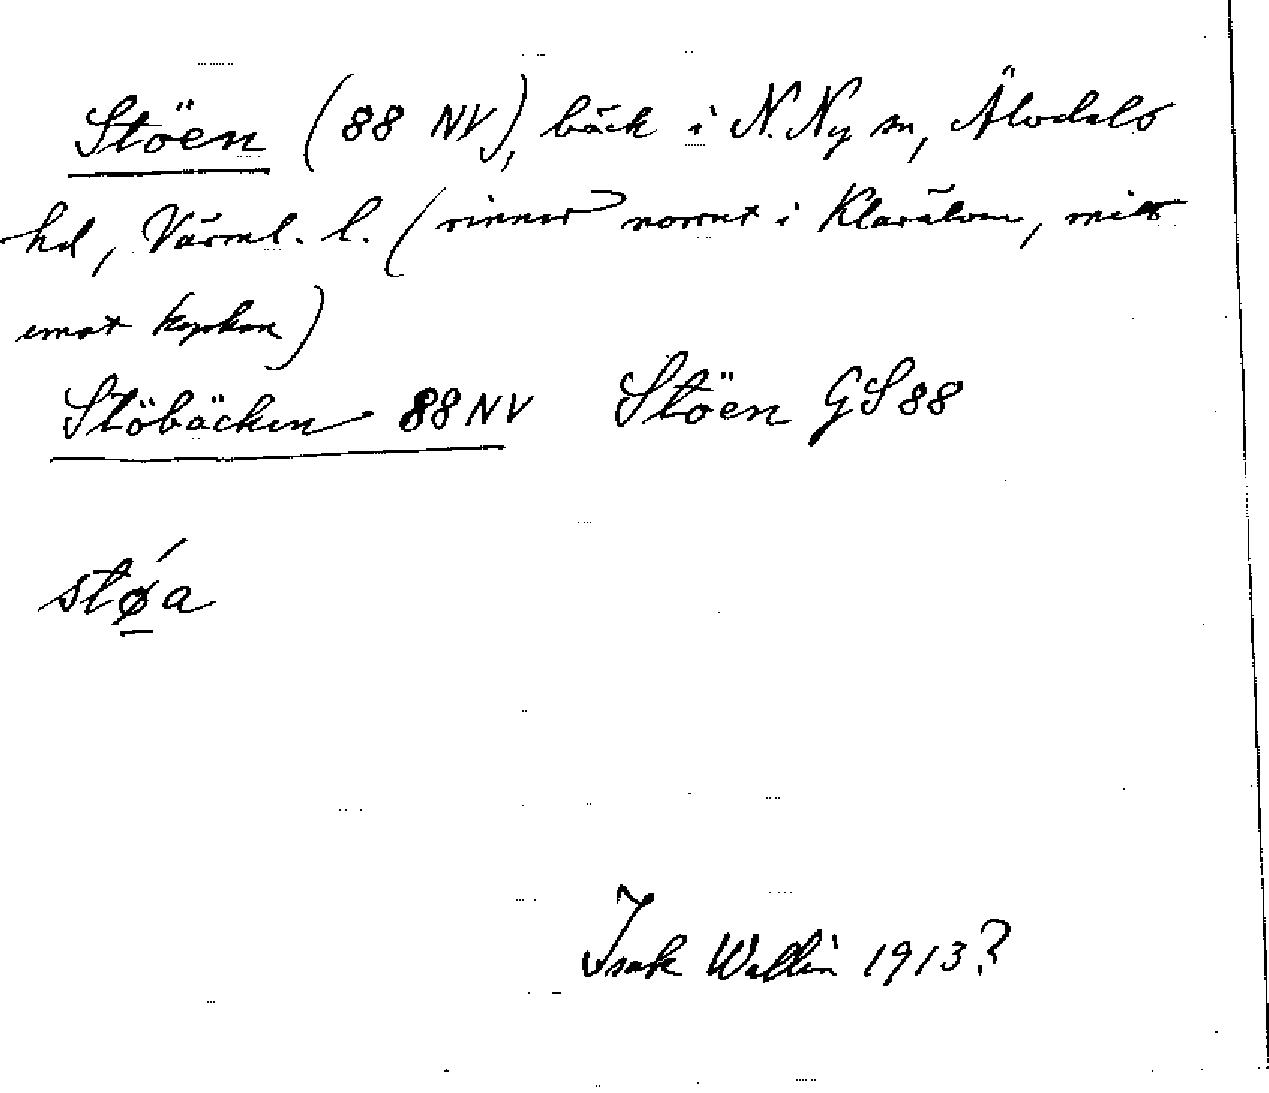 Stöen (88 NV), bäck i N. Ny sn, Älvdals
hd, Värml. l. (rinner norrut i Klarälven, mitt
emot kyrkan)
Stöbäcken 88 NV Stöen GS 88
stø´a
Isak Wallin 1913?